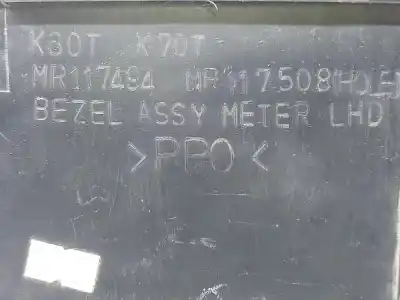 K30T K70T
MR117494 MR117508(HOLE)
BEZEL ASSY METER LHD
>PPO<